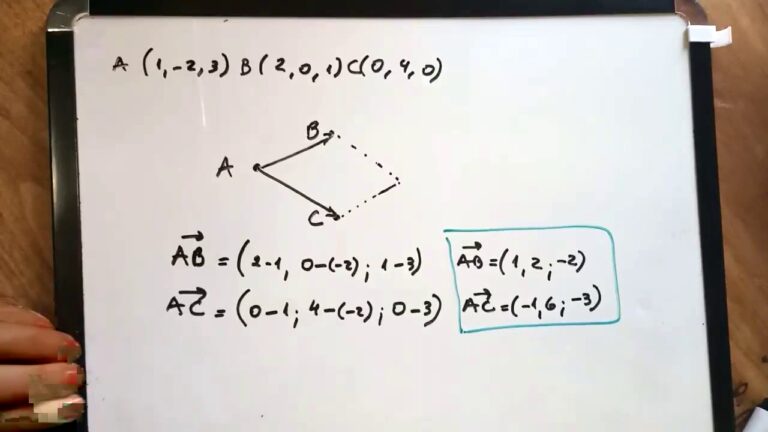 A (1,-2,3) B(2,0,1) C(0,4,0)
B
A
C
\overrightarrow{AB} = (2-1, 0-(-2); 1-3)
\overrightarrow{AB} = (1, 2; -2)
\overrightarrow{AC} = (0-1; 4-(-2); 0-3)
\overrightarrow{AC} = (-1, 6; -3)